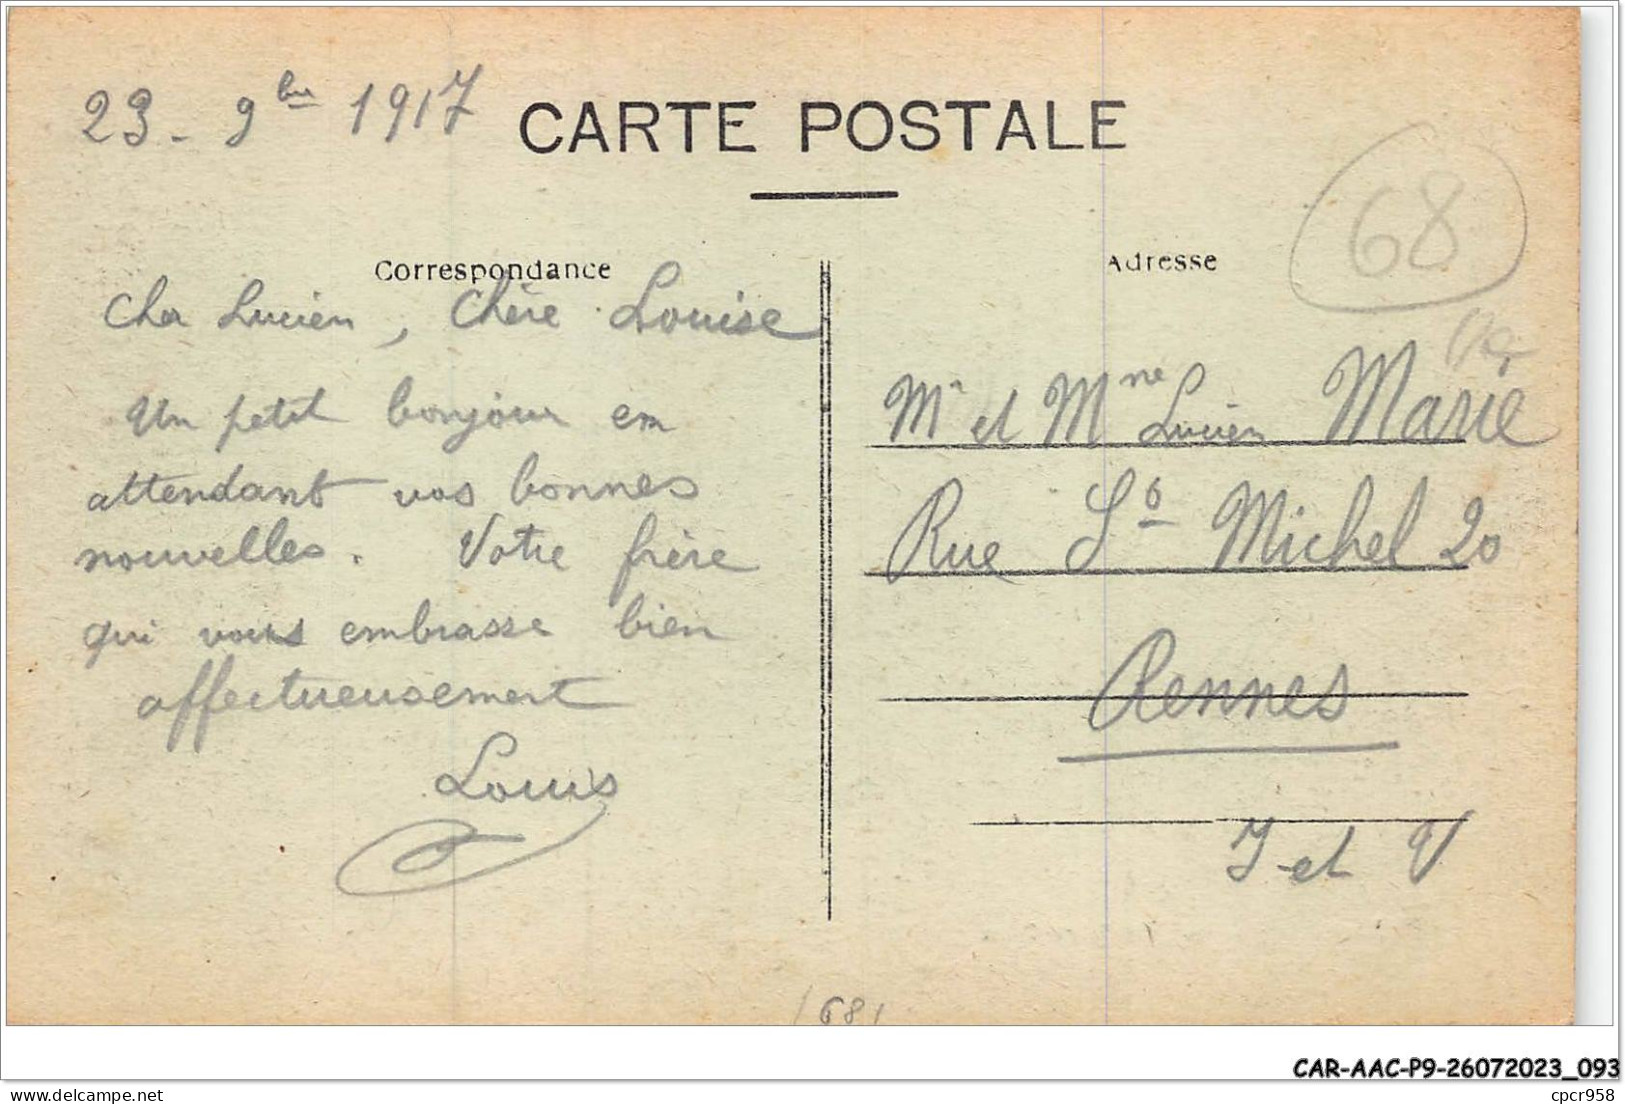 23 - 9bre 1917
CARTE POSTALE
68
Correspondance
Cher Lucien, Chère Louise
Un petit bonjour en
attendant vos bonnes
nouvelles. Votre frère
qui vous embrasse bien
affectueusement
Louis
Adresse
Mr et Mme Lucien Marie
Rue St Michel 20
Rennes
I et V
681
CAR-AAC-P9-26072023_093
delcampe.net
cpcr958